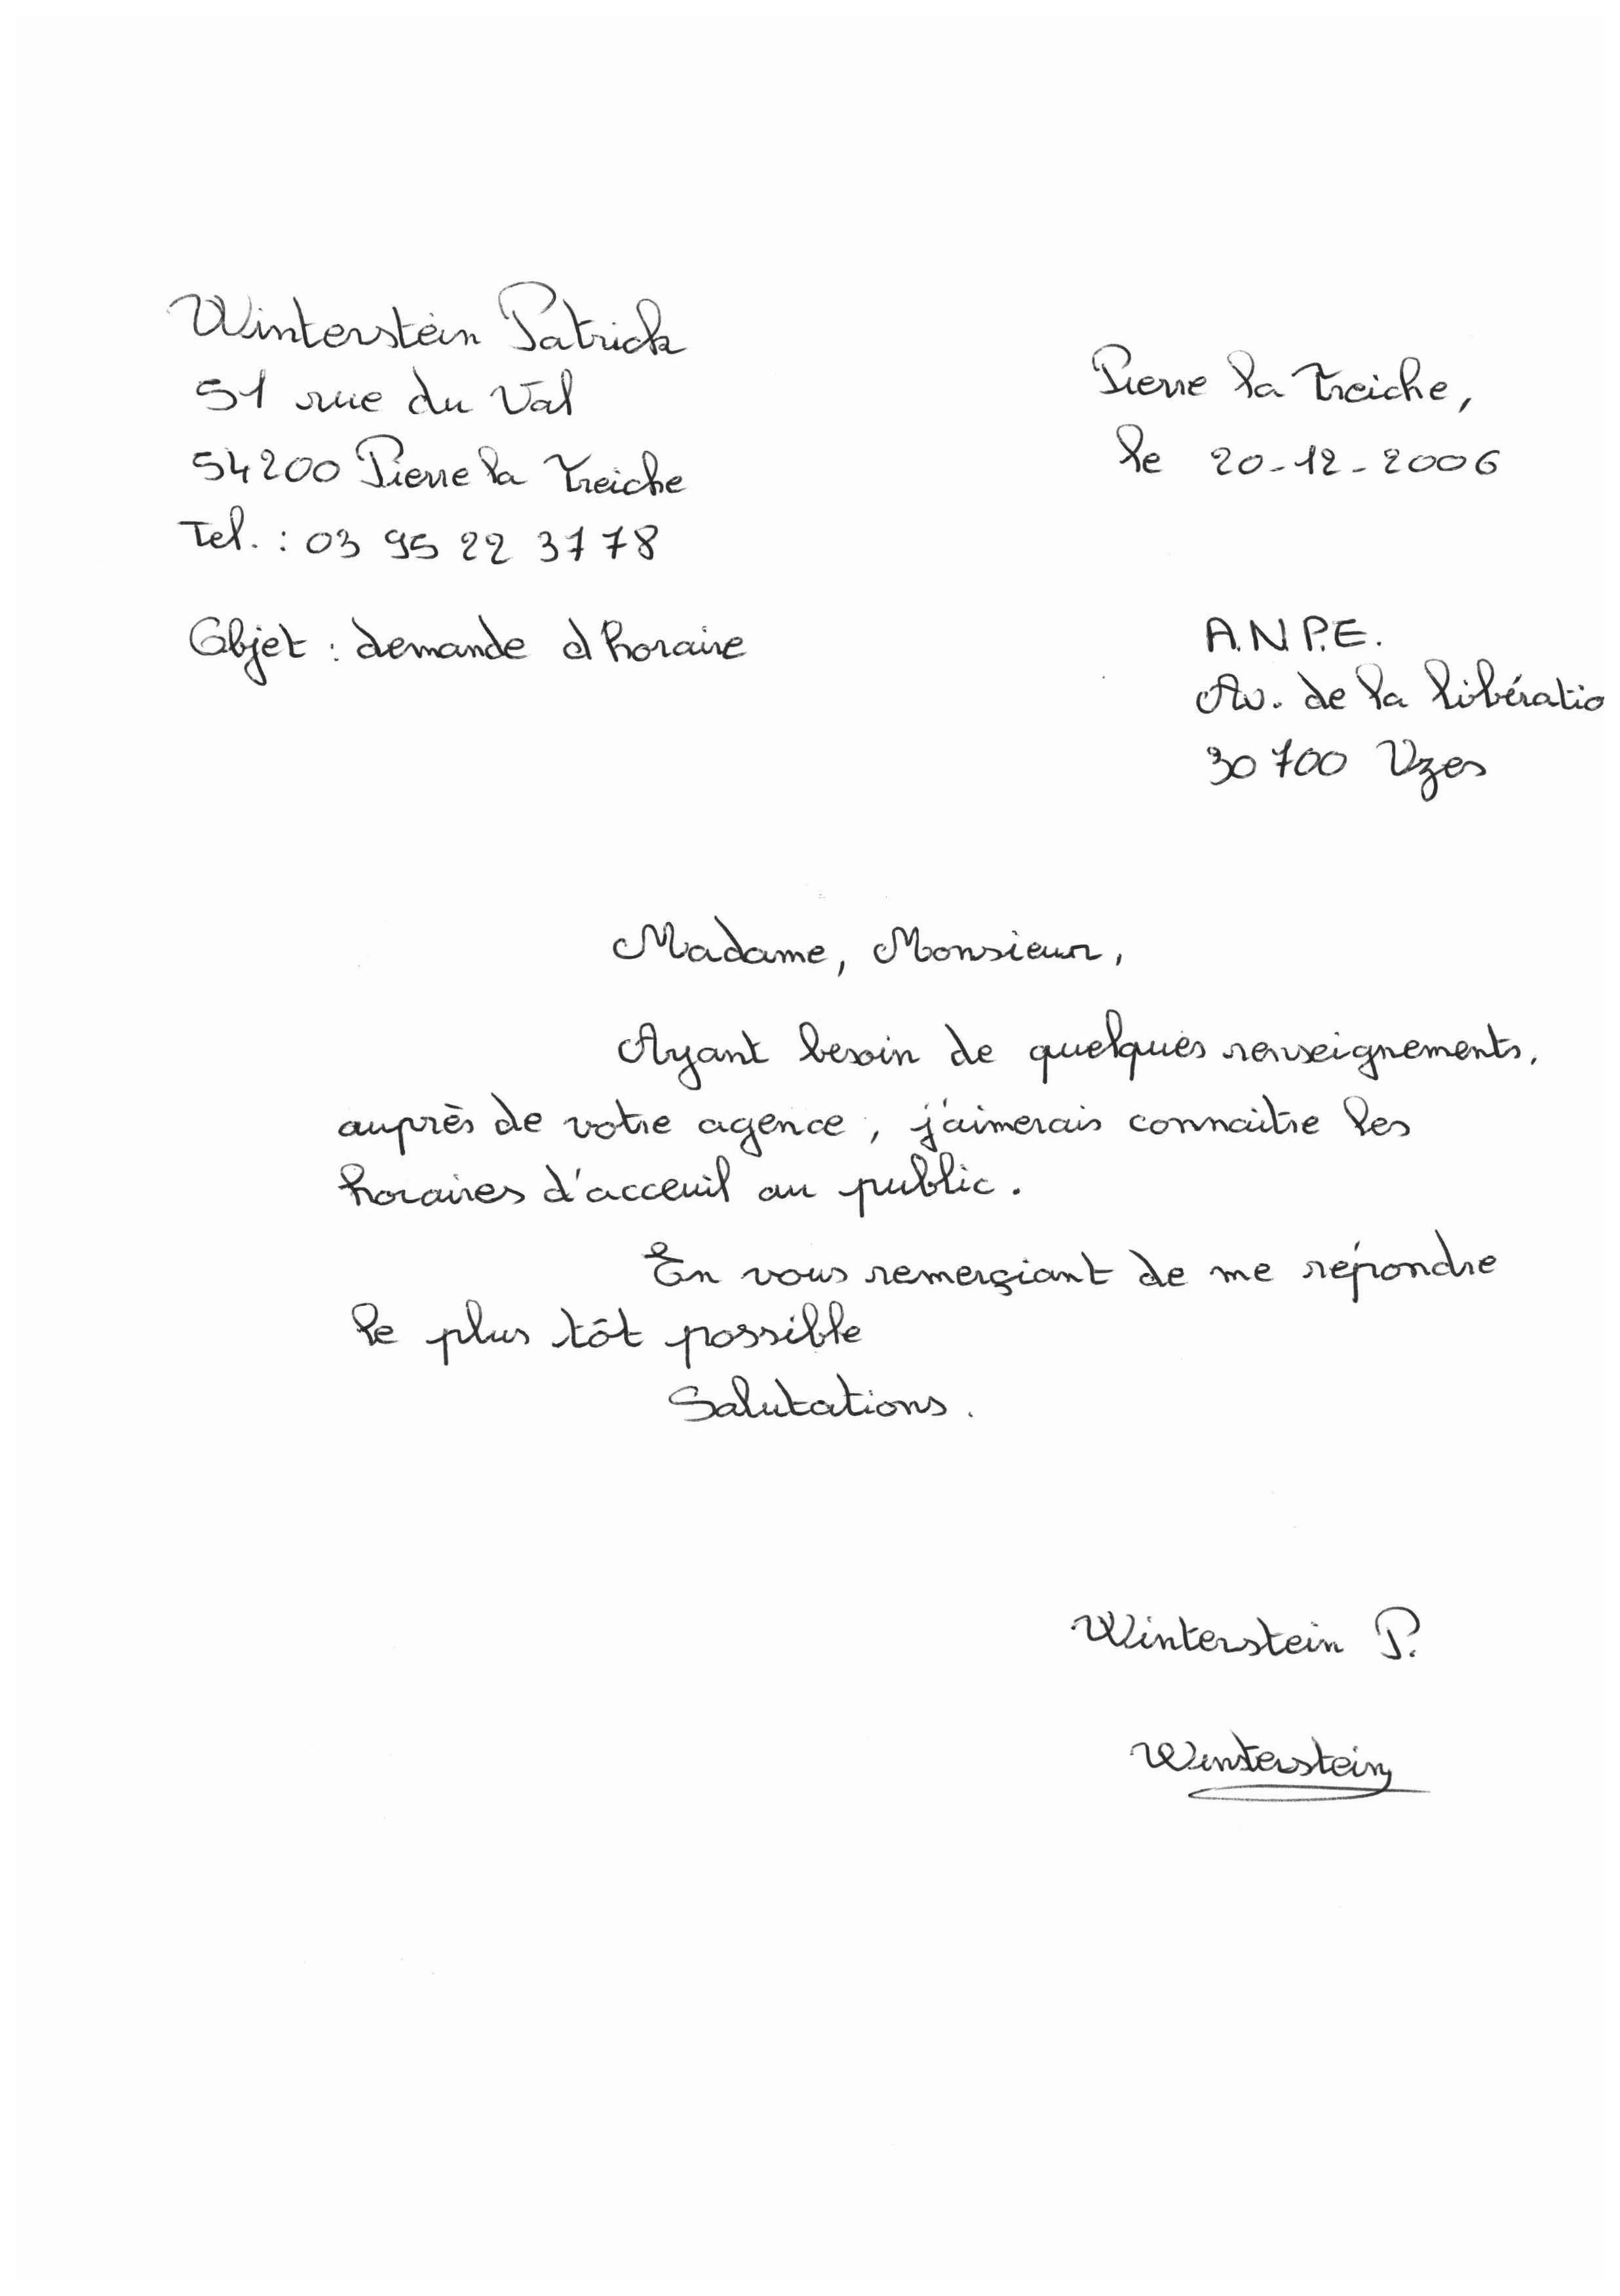 Winterstein Patrick
51 rue du Val
54200 Pierre la Treiche
Tel. : 03 95 22 37 78
Pierre la Treiche,
le 20-12-2006
Objet : demande d horaire
A.N.P.E.
Av. de la libératio
30700 Uzes
Madame, Monsieur,
Ayant besoin de quelques renseignements,
auprès de votre agence, j'aimerais connaitre les
horaires d'acceuil au public.
En vous remerçiant de me répondre
le plus tôt possible
Salutations.
Winterstein P.
Winterstein